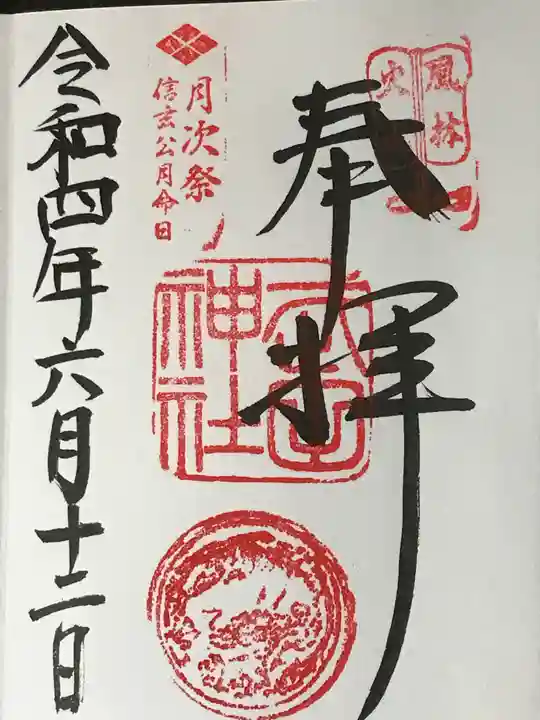 風林
火山
奉拝
武田
神社
月次祭
信玄公月命日
令和四年六月十二日